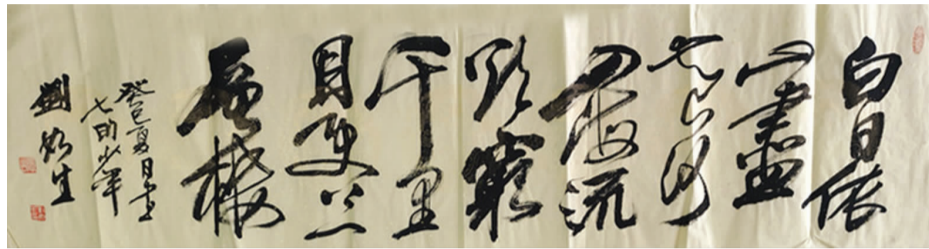 白日依
山盡
黃河
入海流
欲窮
千里
目更上一
層樓
癸巳夏月書
七旬少年
劉生